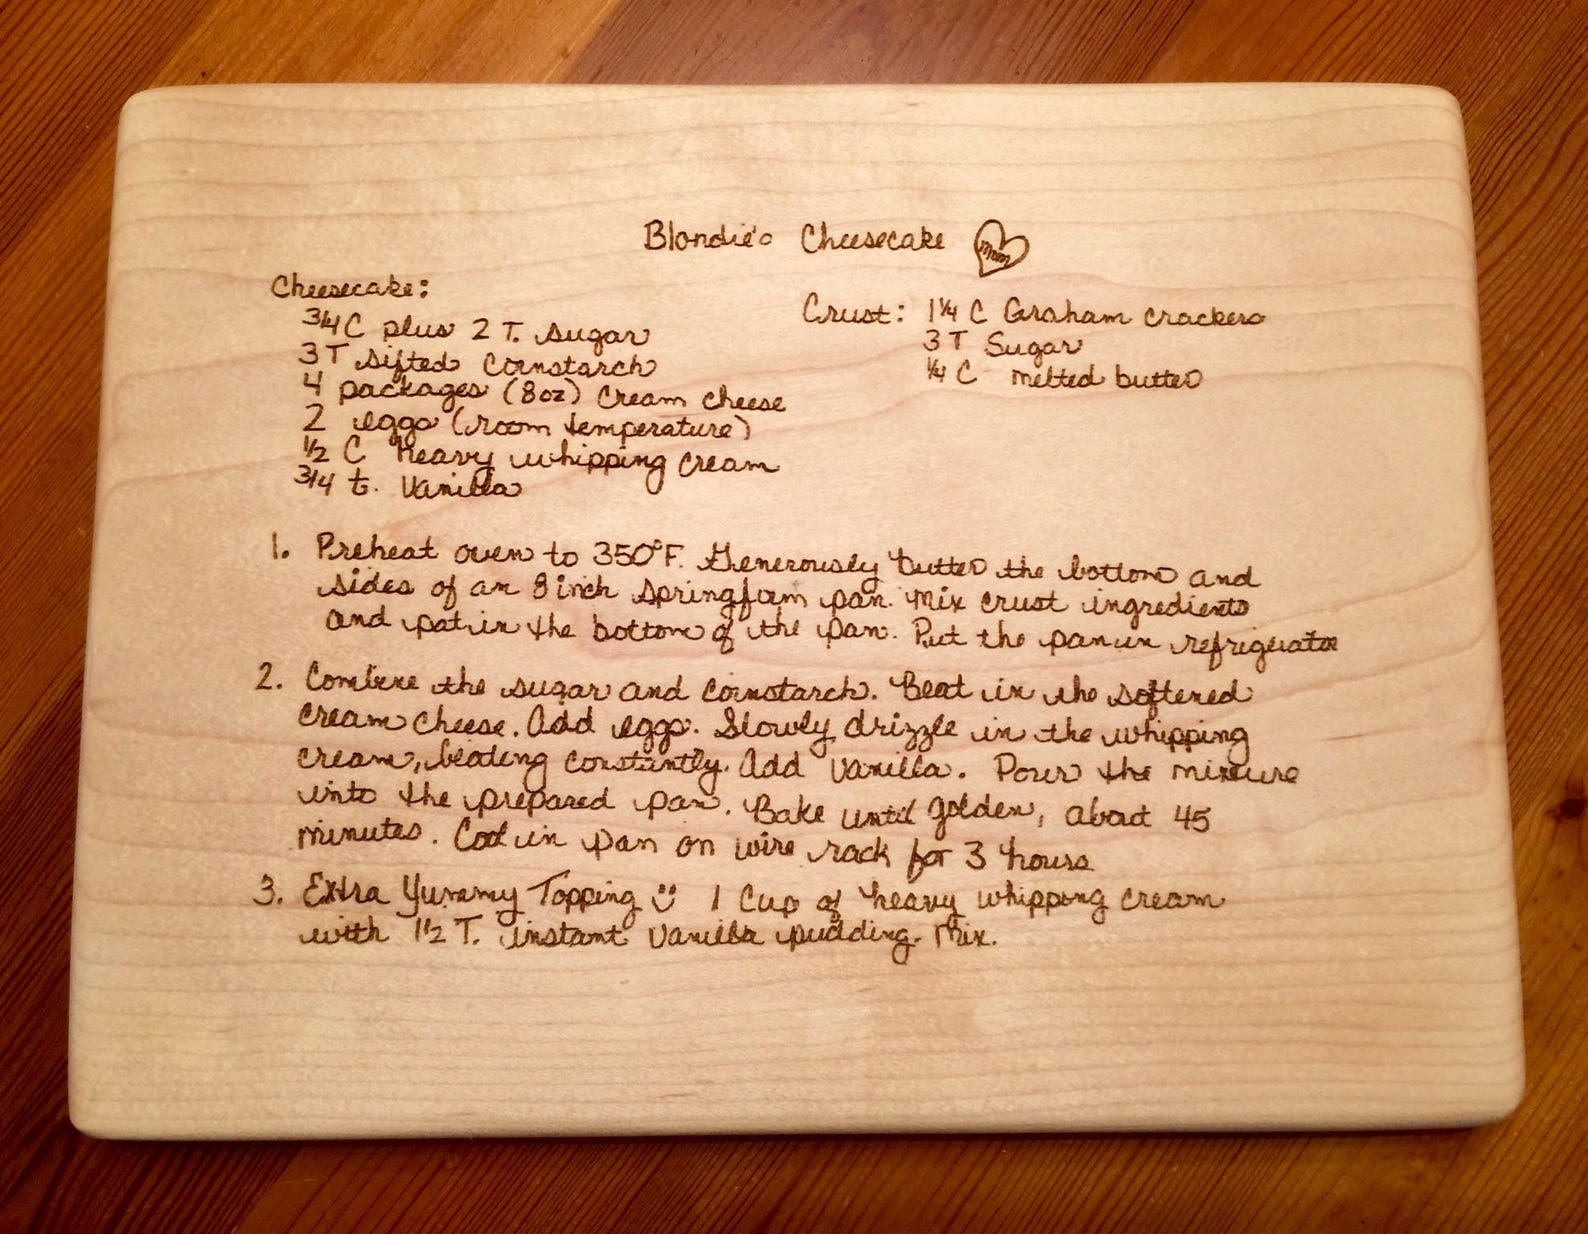 Blondie's Cheesecake Mom
Cheesecake:
3/4 C plus 2 T. sugar
3 T sifted cornstarch
4 packages (8oz) cream cheese
2 eggs (room temperature)
1/2 C heavy whipping cream
3/4 t. vanilla
Crust: 1 1/4 C Graham crackers
3 T Sugar
1/4 C melted butter
1. Preheat oven to 350°F. Generously butter the bottom and
sides of an 8 inch springform pan. Mix crust ingredients
and pat in the bottom of the pan. Put the pan in refrigerator
2. Combine the sugar and cornstarch. Beat in the softened
cream cheese. Add eggs. Slowly drizzle in the whipping
cream, beating constantly. Add vanilla. Pour the mixture
into the prepared pan. Bake until golden, about 45
minutes. Cool in pan on wire rack for 3 hours
3. Extra Yummy Topping 1 cup of heavy whipping cream
with 1 1/2 T. instant vanilla pudding. Mix.